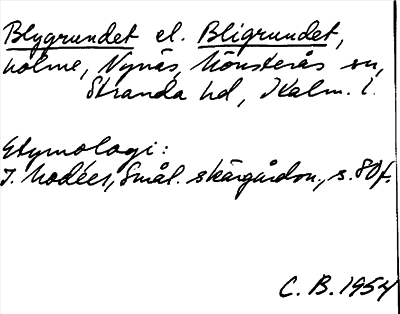 Blygrundet el. Bligrundet,
holme, Nynäs, Mönsterås sn,
Stranda hd, Kalm. l.
Etymologi:
I. Modéer, Smål. skärgårdsn., s. 80 f.
C. B. 1954